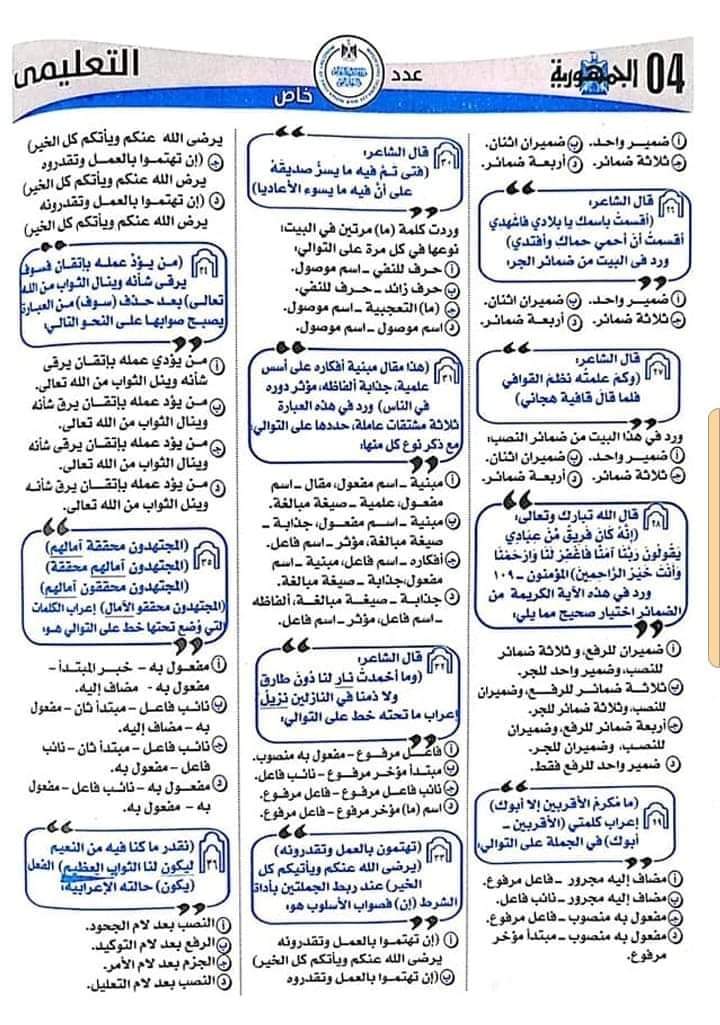 04 الجمهورية
عدد
خاص
التعليمى
أ ضميـر واحـد. ب ضميران اثنان.
ج ثلاثة ضمائر. د أربعـة ضمائر.
٢٦ قال الشاعر:
(أقسمتُ باسمك يا بلادي فاشهدي
أقسمت أن أحمي حماك وأفتدي)
ورد فى البيت من ضمائر الجر:
أ ضميـر واحـد. ب ضميران اثنان.
ج ثلاثة ضمائر. د أربعـة ضمائر.
٢٧ قال الشاعر:
(وكمْ علمتُه نظمَ القوافي
فلما قالَ قافية هجاني)
ورد في هذا البيت من ضمائر النصب:
أ ضميـر واحـد. ب ضميران اثنان.
ج ثلاثة ضمائر. د أربعـة ضمائر.
٢٨ قال الله تبارك وتعالى:
(إِنَّهُ كَانَ فَرِيقٌ مِّنْ عِبَادِي
يَقُولُونَ رَبَّنَا آمَنَّا فَاغْفِرْ لَنَا وَارْحَمْنَا
وَأَنتَ خَيْرُ الرَّاحِمِينَ) المؤمنون -١٠٩
ورد في هذه الآية الكريمة من
الضمائر اختيار صحيح مما يلي:
أ ضميران للرفع، و ثلاثة ضمائر
للنصب، وضمير واحد للجر.
ب ثلاثـة ضمائـر للرفـع، وضميران
للنصب، وثلاثة ضمائر للجر.
ج أربعة ضمائر للرفع، وضميران
للنصـب، وضميران للجر.
د ضمير واحد للرفع فقط.
٢٩ (ما مُكرمٌ الأقربين إلا أبوك)
إعراب كلمتي (الأقربين ـ
أبوك) في الجملة على التوالي:
أ مضاف إليه مجرور ـ فاعل مرفوع.
ب مضاف إليه مجرور ـ نائب فاعل.
ج مفعول به منصوب ـ فاعل مرفوع.
د مفعول به منصوب ـ مبتدأ مؤخر
مرفوع.
٣٠ قال الشاعر:
(فتى تمّ فيه ما يسرُّ صديقَهُ
على أنّ فيه ما يسوء الأعاديا)
وردت كلمة (ما) مرتين في البيت؛
نوعها في كل مرة على التوالي:
أ حرف للنفي ـ اسم موصول.
ب حرف زائد ـ حرف للنفي.
ج (ما) التعجبية ـ اسم موصول.
د اسم موصول ـ اسم موصول.
٣١ (هذا مقال مبنية أفكاره على أسس
علمية، جذابة ألفاظه، مؤثر دوره
في الناس) ورد في هذه العبارة
ثلاثة مشتقات عاملة، حددها على التوالي،
مع ذكر نوع كل منها:
أ مبنية ـ اسم مفعول، مقال ـ اسم
مفعول، علمية ـ صيغة مبالغة.
ب مبنية ـ اسـم مفعول، جذابـة ـ
صيغة مبالغة، مؤثر ـ اسم فاعل.
ج أفكاره ـ اسم فاعل، مبنية ـ اسم
مفعول، جذابة ـ صيغة مبالغة.
د جذابة ـ صيغـة مبالغـة، ألفاظه
ـ اسم فاعل، مؤثر ـ اسم فاعل.
٣٢ قال الشاعر:
(وما أخمدتْ نار لنا دُونَ طارق
ولا ذمنا في النازلين نزيلُ)
إعراب ما تحته خط على التوالي:
أ فاعـل مرفوع ـ مفعول به منصوب.
ب مبتدأ مؤخر مرفوع ـ نائب فاعل.
ج نائب فاعل مرفوع ـ فاعل مرفوع.
د اسم (ما) مؤخر مرفوع ـ فاعل مرفوع.
٣٣ (تهتمون بالعمل وتقدرونه)
(يرضى الله عنكم ويأتيكم كل
الخير) عند ربط الجملتين بأداة
الشرط (إن) فصواب الأسلوب هو:
أ (إن تهتموا بالعمـل وتقدرونه
يرضى الله عنكم ويأتكم كل الخير)
ب (إن تهتمـوا بالعمـل وتقدروه
يرضى الله عنكم ويأتكم كل الخير)
ج (إن تهتمـوا بالعمـل وتقدروه
يرض الله عنكم ويأتكم كل الخير)
د (إن تهتمـوا بالعمـل وتقدرونه
يرض الله عنكم ويأتكم كل الخير)
٣٤ (من يؤدْ عمله بإتقان فسوف
يرقى شأنه وينال الثواب من الله
تعالى) بعد حذف (سوف) من العبارة
يصبح صوابها على النحو التالي:
أ من يؤدي عمله بإتقان يرقى
شأنه وينل الثواب من الله تعالى.
ب من يؤد عمله بإتقان يرق شأنه
وينال الثواب من الله تعالى.
ج من يؤد عمله بإتقان يرقى شأنه
وينال الثواب من الله تعالى.
د من يؤد عمله بإتقان يرق شأنه
وينل الثواب من الله تعالى.
٣٥ (المجتهدون محققة آمالهم)
(المجتهدون آمالهم محققة)
(المجتهدون محققون آمالهم)
(المجتهدون محققو الآمال) إعراب الكلمات
التي وُضع تحتها خط على التوالي هو:
أ مفعول به - خبر المبتدأ -
مفعول به - مضاف إليه.
ب نائب فاعل - مبتدأ ثان - مفعول
به - مضاف إليه.
ج نائب فاعل - مبتدأ ثان - نائب
فاعل - مفعول به.
د مفعول به - نائب فاعل - مفعول
به - مفعول به.
٣٦ (نقدر ما كنا فيه من النعيم
ليكون لنا الثواب العظيم) الفعل
(يكون) حالته الإعرابية:
أ النصب بعد لام الجحود.
ب الرفع بعد لام التوكيد.
ج الجزم بعد لام الأمر.
د النصب بعد لام التعليل.